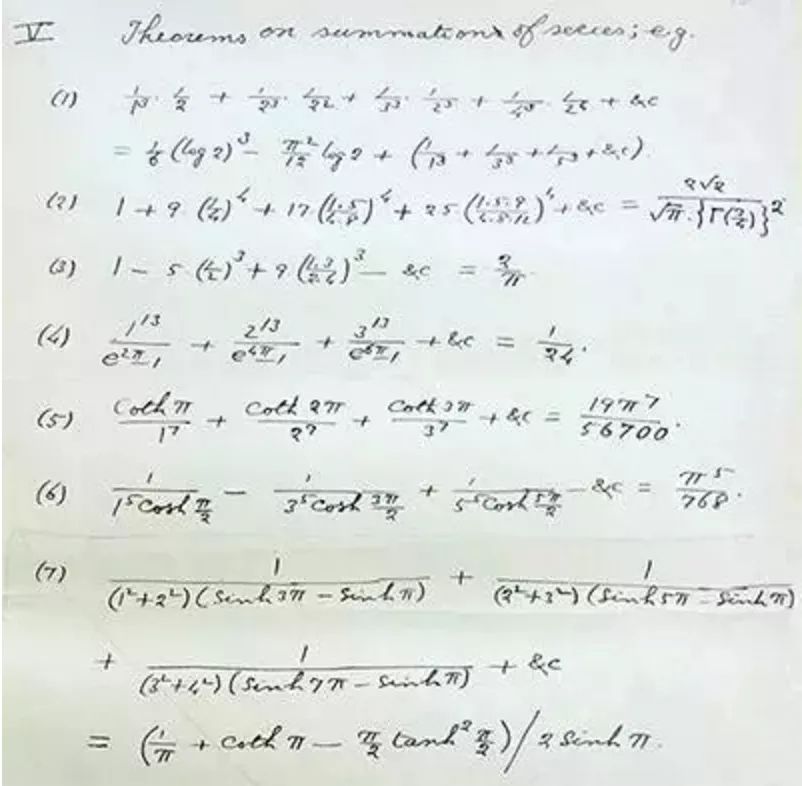 V Theorems on summations of series; e.g.
(1) 1/1³ · 1/2 + 1/2³ · 1/2² + 1/3³ · 1/2³ + 1/4³ · 1/2⁴ + &c
= 1/6 (log 2)³ − π²/12 log 2 + (1/1³ + 1/3³ + 1/5³ + &c).
(2) 1 + 9 (1/4)⁴ + 17 (1.5/4.8)⁴ + 25 (1.5.9/4.8.12)⁴ + &c = 2√2/√π.{Γ(3/4)}²
(3) 1 − 5 (1/2)³ + 9 (1.3/2.4)³ − &c = 2/π
(4) 1¹³/e^2π−1 + 2¹³/e^4π−1 + 3¹³/e^6π−1 + &c = 1/24.
(5) Coth π/1⁷ + Coth 2π/2⁷ + Coth 3π/3⁷ + &c = 19π⁷/56700.
(6) 1/1⁵Cosh π/2 − 1/3⁵Cosh 3π/2 + 1/5⁵Cosh 5π/2 − &c = π⁵/768.
(7) 1/(1²+2²)(Sinh 3π − Sinh π) + 1/(2²+3²)(Sinh 5π − Sinh π)
+ 1/(3²+4²)(Sinh 7π − Sinh π) + &c
= (1/π + Coth π − π/2 tanh² π/2)/2 Sinh π.